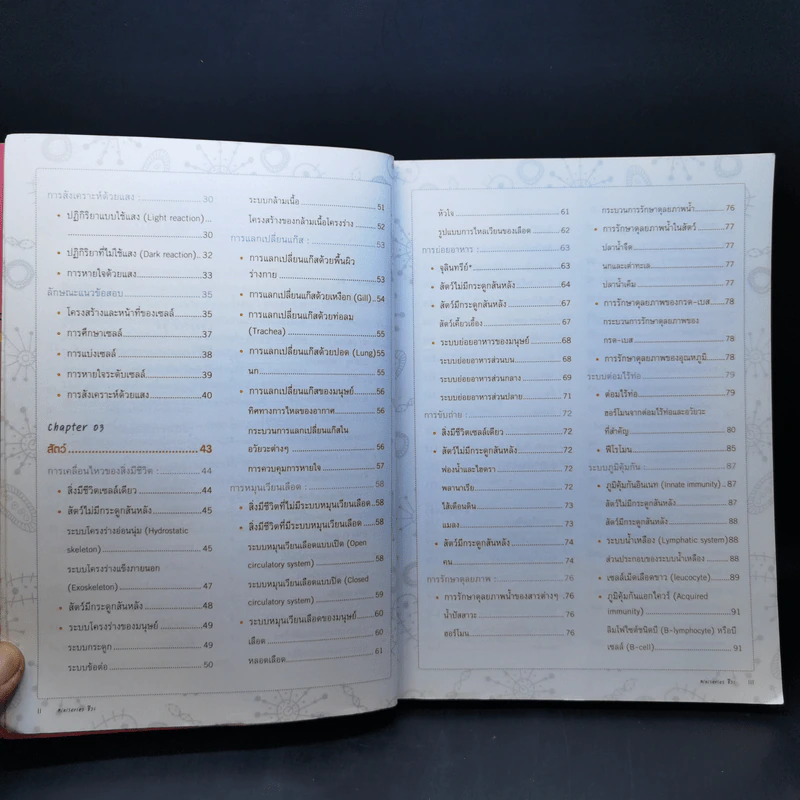 การสังเคราะห์ด้วยแสง 30
• ปฏิกิริยาแบบใช้แสง (Light reaction)...
30
• ปฏิกิริยาที่ไม่ใช้แสง (Dark reaction).. 32
• การหายใจด้วยแสง 33
ลักษณะแนวข้อสอบ 35
• โครงสร้างและหน้าที่ของเซลล์ 35
• การศึกษาเซลล์ 37
• การแบ่งเซลล์ 38
• การหายใจระดับเซลล์ 39
• การสังเคราะห์ด้วยแสง 40
Chapter 03
สัตว์ 43
การเคลื่อนไหวของสิ่งมีชีวิต : 44
• สิ่งมีชีวิตเซลล์เดียว 44
• สัตว์ไม่มีกระดูกสันหลัง 45
ระบบโครงร่างอ่อนนุ่ม (Hydrostatic
skeleton) 45
ระบบโครงร่างแข็งภายนอก
(Exoskeleton) 47
• สัตว์มีกระดูกสันหลัง 48
• ระบบโครงร่างของมนุษย์ 49
ระบบกระดูก 49
ระบบข้อต่อ 50
ระบบกล้ามเนื้อ 51
โครงสร้างของกล้ามเนื้อโครงร่าง 52
การแลกเปลี่ยนแก๊ส : 53
• การแลกเปลี่ยนแก๊สด้วยพื้นผิว
ร่างกาย 53
• การแลกเปลี่ยนแก๊สด้วยเหงือก (Gill) ..54
• การแลกเปลี่ยนแก๊สด้วยท่อลม
(Trachea) 55
• การแลกเปลี่ยนแก๊สด้วยปอด (Lung)55
นก 55
• การแลกเปลี่ยนแก๊สของมนุษย์ 56
ทิศทางการไหลของอากาศ 56
กระบวนการแลกเปลี่ยนแก๊สใน
อวัยวะต่างๆ 56
การควบคุมการหายใจ 57
การหมุนเวียนเลือด : 58
• สิ่งมีชีวิตที่ไม่มีระบบหมุนเวียนเลือด .. 58
• สิ่งมีชีวิตที่มีระบบหมุนเวียนเลือด 58
ระบบหมุนเวียนเลือดแบบเปิด (Open
circulatory system) 58
ระบบหมุนเวียนเลือดแบบปิด (Closed
circulatory system) 59
• ระบบหมุนเวียนเลือดของมนุษย์ 60
เลือด 60
หลอดเลือด 61
II
หัวใจ 61
รูปแบบการไหลเวียนของเลือด 62
การย่อยอาหาร : 63
• จุลินทรีย์* 63
• สัตว์ไม่มีกระดูกสันหลัง 64
• สัตว์มีกระดูกสันหลัง 67
สัตว์เคี้ยวเอื้อง 67
• ระบบย่อยอาหารของมนุษย์ 68
ระบบย่อยอาหารส่วนบน 68
ระบบย่อยอาหารส่วนกลาง 69
ระบบย่อยอาหารส่วนปลาย 71
การขับถ่าย : 72
• สิ่งมีชีวิตเซลล์เดียว 72
• สัตว์ไม่มีกระดูกสันหลัง 72
ฟองน้ำและไฮดรา 72
พลานาเรีย 72
ไส้เดือนดิน 73
แมลง 73
• สัตว์มีกระดูกสันหลัง 74
คน 74
การรักษาดุลยภาพ : 76
• การรักษาดุลยภาพน้ำของสารต่างๆ . 76
น้ำปัสสาวะ 76
ฮอร์โมน 76
กระบวนการรักษาดุลยภาพน้ำ 76
• การรักษาดุลยภาพน้ำในสัตว์ 77
ปลาน้ำจืด 77
นกและเต่าทะเล 77
ปลาน้ำเค็ม 77
• การรักษาดุลยภาพของกรด-เบส 78
กระบวนการรักษาดุลยภาพของ
กรด-เบส 78
• การรักษาดุลยภาพของอุณหภูมิ 78
ระบบต่อมไร้ท่อ 79
• ต่อมไร้ท่อ 79
ฮอร์โมนจากต่อมไร้ท่อและอวัยวะ
ที่สำคัญ 80
• ฟีโรโมน 85
ระบบภูมิคุ้มกัน : 87
• ภูมิคุ้มกันอินเนท (Innate immunity) . 87
สัตว์ไม่มีกระดูกสันหลัง 87
สัตว์มีกระดูกสันหลัง 88
• ระบบน้ำเหลือง (Lymphatic system)88
ส่วนประกอบของระบบน้ำเหลือง 88
• เซลล์เม็ดเลือดขาว (leucocyte) 89
• ภูมิคุ้มกันแอกไควร์ (Acquired
immunity) 91
ลิมโฟไซต์ชนิดบี (B-lymphocyte) หรือบี
เซลล์ (B-cell) 91
III